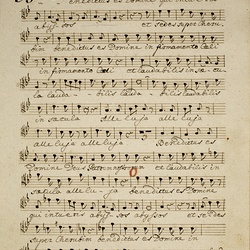 Benedictus es Domine qui intueris
abyssos et sedes super Cheru-
bim benedictus es Domine in firmamento Cœli
in firmamento Cœli et laudabilis in sæcu-
la lauda - bilis lauda - bilis laudabilis
in sæcula alle luja alle luja
alleluja alleluja Benedictus es
Domine Deus Patrum et laudabilis in
sæcula alle lu - ja benedictus es Domine
qui intueris abyssos abyssos et sedes
super Cherubim benedictus es Domine in